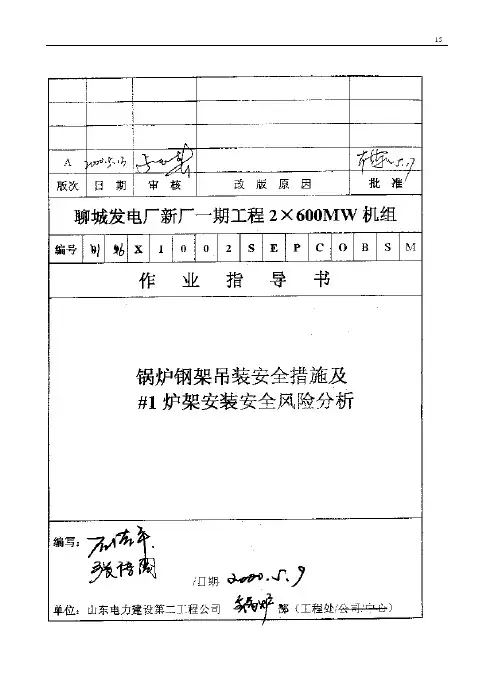 15
A 2000.5.13
版次 日期 审核 改版原因 批准
聊城发电厂新厂一期工程2×600MW机组
编号 X 1 0 0 2 S E P C O B S M
作业指导书
锅炉钢架吊装安全措施及
#1炉架安装安全风险分析
编写：
/日期 2000.5.9
单位：山东电力建设第二工程公司 锅炉 部（工程处/公司/中心）